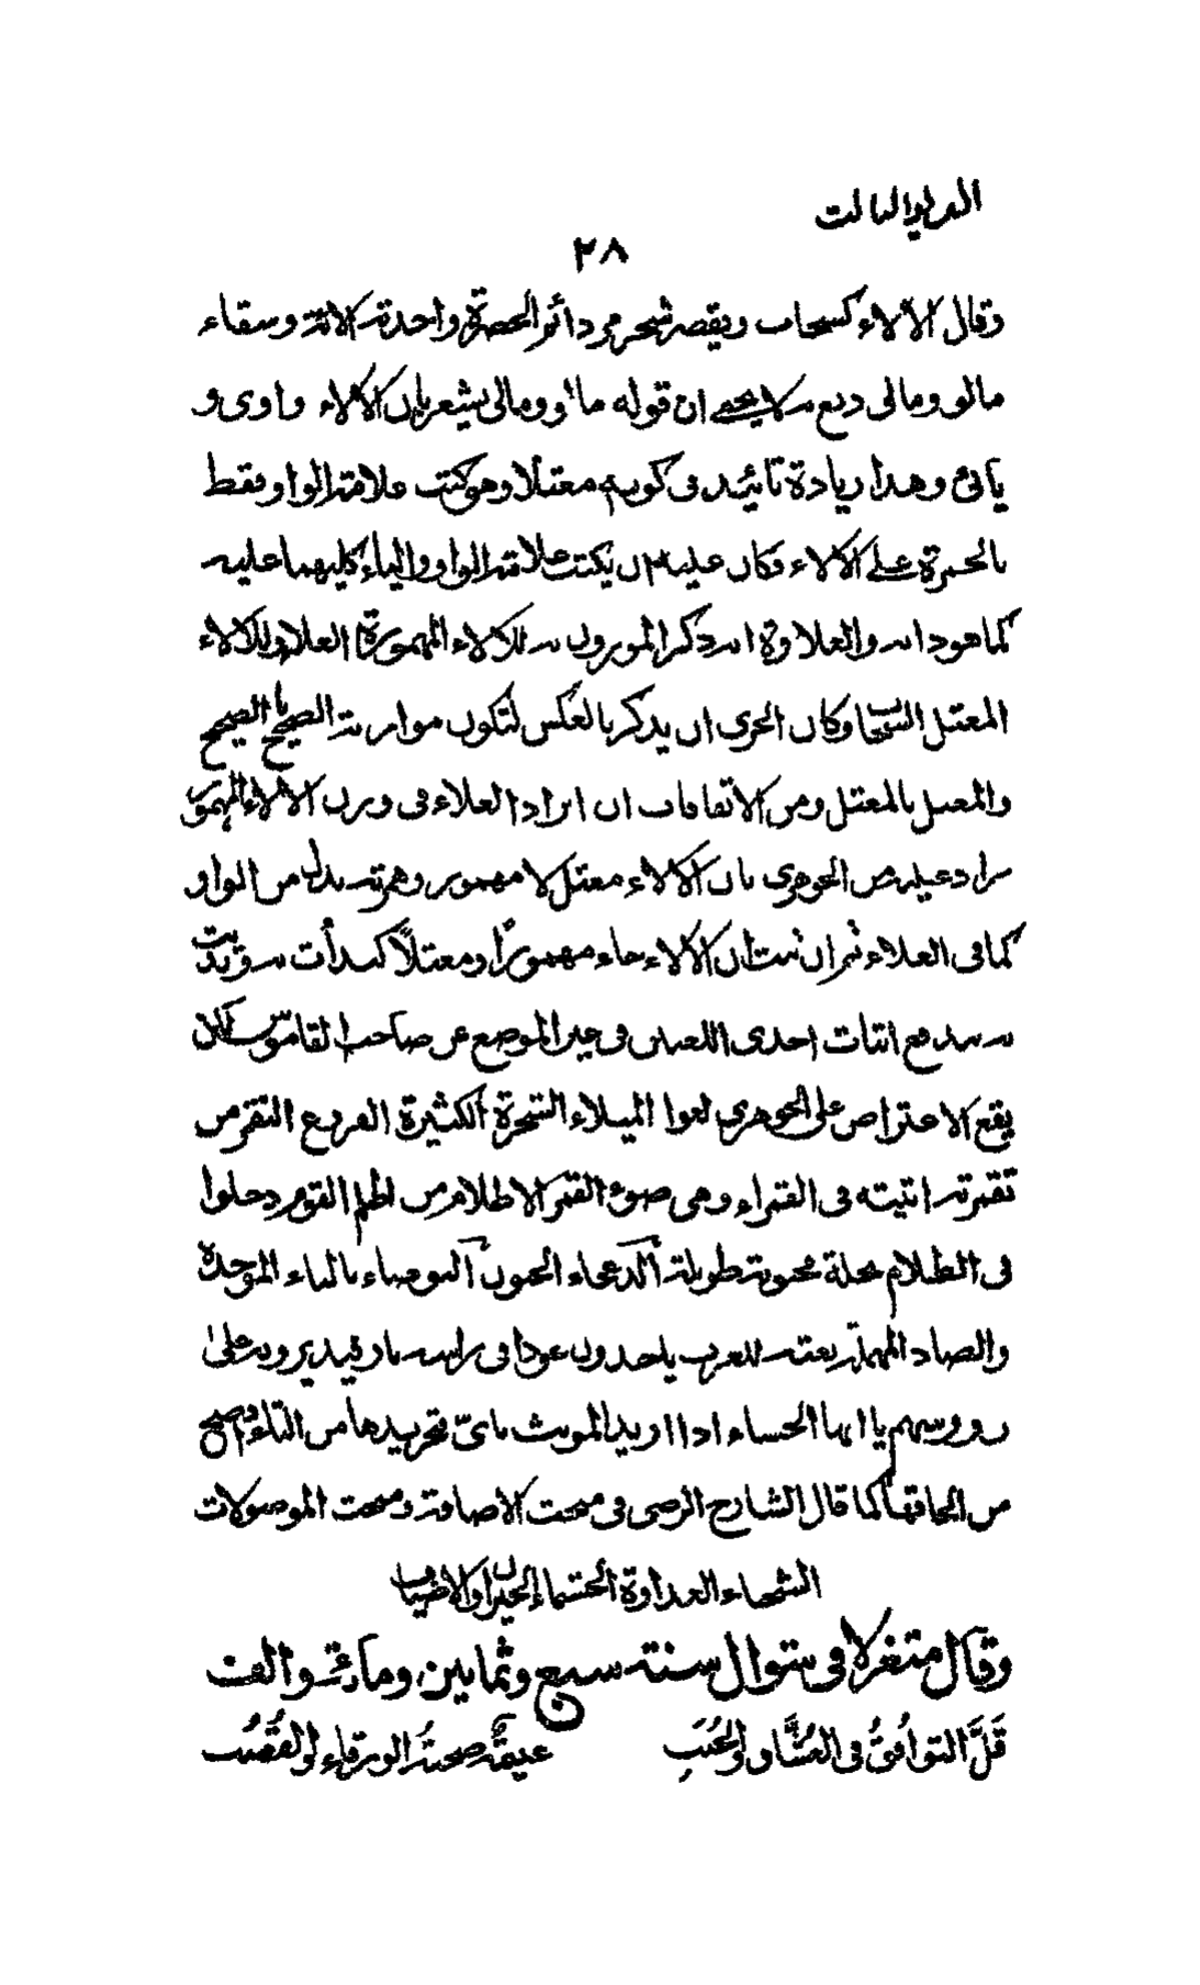 الديوان الثالث
٢٨
وقال الألاء كسحاب ويقصر شجر مر دائم الخضرة واحدته ألاءة وسقاء
مألو ومالى دبغ به لا يخفى ان قوله مألو ومالى يشعر بان الألاء واوى و
يائى وهذا زيادة تائيد فى كونه معتلا وهو كتب علامة الواو فقط
بالحمرة على الألاء فكان عليه ان يكتب علامة الواو والياء كليهما عليه
كما هو دابه والعلاوة انه ذكر الموزون به للألاء المهموزة العلاء وللألاء
المعتل السحاب وكان الحرى ان يذكر بالعكس لتكون موازنة الصحيح بالصحيح
والمعتل بالمعتل ومن الاتفاقات ان ايراد العلاء فى وزن الألاء المهموز
زاد عليه نص الجوهرى بان الألاء معتل لا مهموز وهمزته بدل من الواو
كما فى العلاء ثم ان ثبت ان الألاء جاء مهموزا ومعتلاً كبدأت به وبديت
به بعد مع اثبات احدى اللغتين فى غير الموضع عن صاحب القاموس لكان
يقع الاعتراض على الجوهرى لغوا الميلاء الشجرة الكثيرة الفروع التقمر من
تقمرته اتيته فى القمراء وهى ضوء القمر الاظلام من اظلم القوم دخلوا
فى الظلام نخلة محبوبة طويلة الدعجاء الجنون البوصاء بالباء الموحدة
والصاد المهملة لعبة للعرب ياخذون عودا فى راسه نار فيديرونه على
رؤوسهم يا ايها الحسناء اذا اريد المونث باىّ فتجريدها من التاء افصح
من الحاقها كما قال الشارح الرضى فى مبحث الاضافة ومبحث الموصولات
الشحناء العداوة الحشماء الجيران والاضياف
وقال متغزلا فى شوال سنة سبع وثمانين ومائة والف
قَلَّ التوافُقُ فى العُشَّاق والحُبَبِ